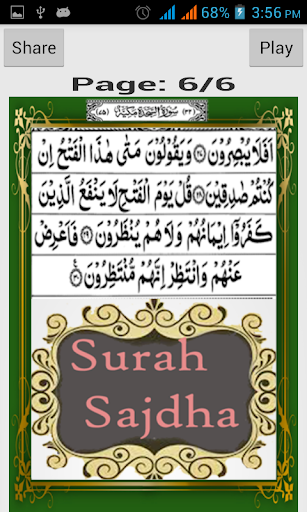 68% 3:56 PM
Share Play
Page: 6/6
(٧٥) سُوْرَةُ السَّجْدَةِ مَكِّيَّةٌ (٣٢)
اَفَلَا يُبْصِرُوْنَ ﴿۲۷﴾ وَيَقُوْلُوْنَ مَتٰى هٰذَا الْفَتْحُ اِنْ
كُنْتُمْ صٰدِقِيْنَ ﴿۲۸﴾ قُلْ يَوْمَ الْفَتْحِ لَا يَنْفَعُ الَّذِيْنَ
كَفَرُوْۤا اِيْمَانُهُمْ وَلَا هُمْ يُنْظَرُوْنَ ﴿۲۹﴾ فَاَعْرِضْ
عَنْهُمْ وَانْتَظِرْ اِنَّهُمْ مُّنْتَظِرُوْنَ ﴿۳۰﴾
Surah
Sajdha